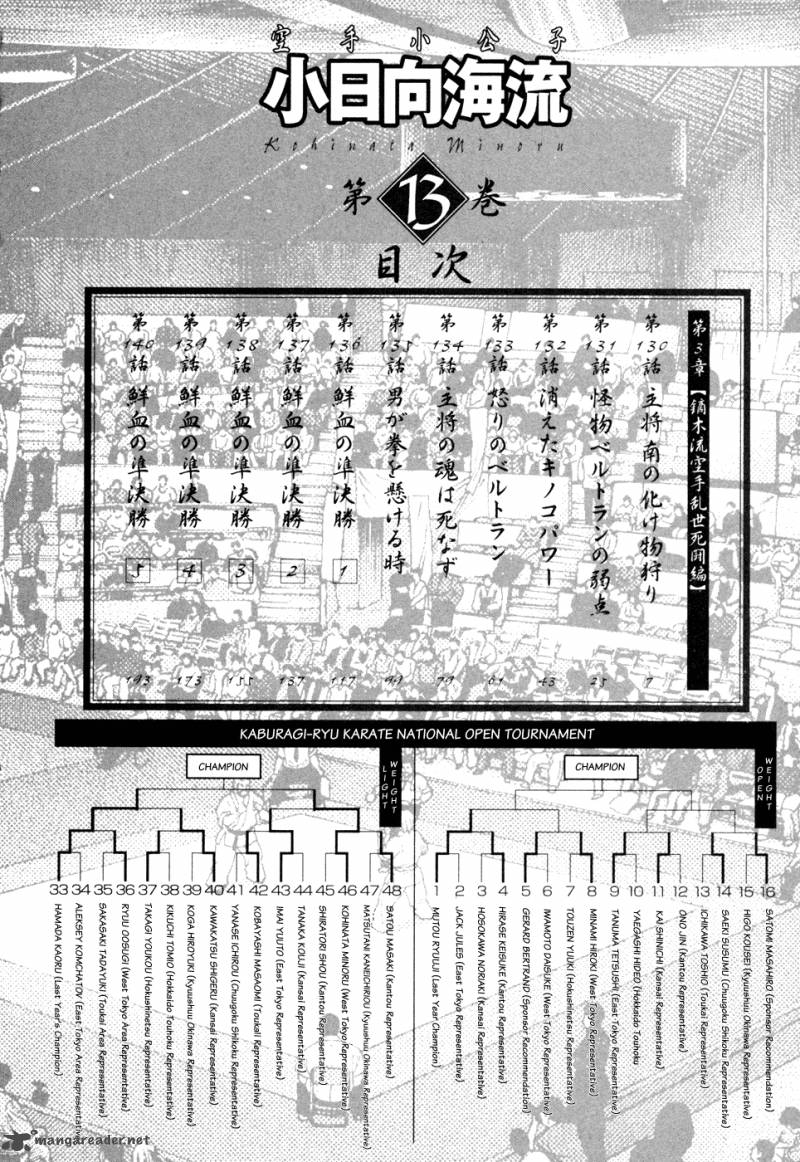 空手小公子
小日向海流
Kohinata Minoru
第13巻
目次
第3章【鏑木流空手乱世死闘編】
第130話 主将南の化け物狩り 7
第131話 怪物ベルトランの弱点 25
第132話 消えたキノコパワー 43
第133話 怒りのベルトラン 61
第134話 主将の魂は死なず 79
第135話 男が拳を懸ける時 99
第136話 鮮血の準決勝 1 117
第137話 鮮血の準決勝 2 137
第138話 鮮血の準決勝 3 155
第139話 鮮血の準決勝 4 173
第140話 鮮血の準決勝 5 193
KABURAGI-RYU KARATE NATIONAL OPEN TOURNAMENT
CHAMPION
LIGHT WEIGHT
33 HAMADA KAORU (Last Year's Champion)
34 ALEKSEY KONCHATOV (East Tokyo Area Representative)
35 SAKASAKI TADAYUKI (Toukai Area Representative)
36 RYUU OOSUGI (West Tokyo Area Representative)
37 TAKAGI YOUKOU (Hokushinetsu Representative)
38 KIKUCHI TOMIO (Hokkaido Touhoku Representative)
39 KOGA HIROYUKI (Kyuushuu Okinawa Representative)
40 KAWAKATSU SHIGERU (Kansai Representative)
41 YANASE ICHIROU (Chuugoku Shikoku Representative)
42 KOBAYASHI MASAOMI (Toukai Representative)
43 IMAI YUUTO (East Tokyo Representative)
44 TANAKA KOUJI (Kansai Representative)
45 SHIRATORI SHOU (Kantou Representative)
46 KOHINATA MINORU (West Tokyo Representative)
47 MATSUTANI KANEICHIROU (Kyuushuu Okinawa Representative)
48 SATOU MASAKI (Kantou Representative)
CHAMPION
OPEN WEIGHT
1 MUTOU RYUUJI (Last Year Champion)
2 JACK JULES (East Tokyo Representative)
3 HOSOKAWA NORIAKI (Kansai Representative)
4 HIRASE KEISUKE (Kantou Representative)
5 GERARD BERTRAND (Sponsor Recommendation)
6 IWAMOTO DAISUKE (West Tokyo Representative)
7 TOUZEN YUUKI (Hokushinetsu Representative)
8 MINAMI HIROKI (West Tokyo Representative)
9 TANUMA TETSUSHI (East Tokyo Representative)
10 YAEGASHI HIDEO (Hokkaido Touhoku
11 KAI SHINICHI (Kansai Representative)
12 ONO JIN (Kantou Representative)
13 ICHIKAWA TOSHIO (Toukai Representative)
14 SAEKI SUSUMU (Chuugoku Shikoku Representative)
15 HIGO KOUSEI (Kyuushuu Okinawa Representative)
16 SATOMI MASAHIRO (Sponsor Recommendation)
mangareader.net